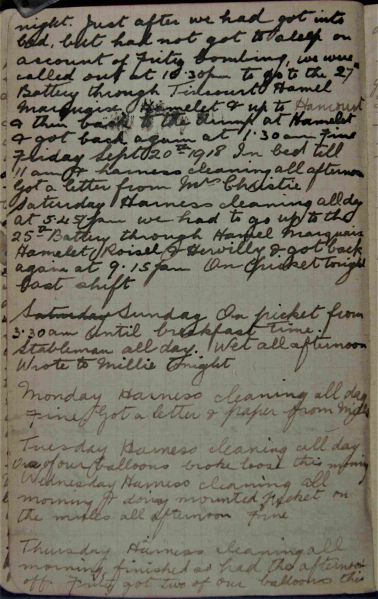 night. Just after we had got into
bed, but had not got to sleep on
account of Fritz bombing, we were
called out at 10.30pm to go to the 27th
Battery through Tincourt Hamel
Marquaix Hamelet & up to Hancourt
& then back to the dump at Hamelet
& got back again at 1.30am Fine
Friday Sept 20th 1918 In bed till
11am & harness cleaning all afternoon
Got a letter from Mrs Christie
Saturday Harness cleaning all day
at 5.45pm we had to go up to the
25th Battery through Hamel Marquaix
Hamelet Roisel & Hervilly & got back
again at 9.15pm On Picket tonight
last shift
Saturday Sunday On picket from
3.30am until breakfast time.
Stableman all day. Wet all afternoon
Wrote to Millie tonight
Monday Harness cleaning all day
Fine, Got a letter & paper from Millie
Tuesday Harness cleaning all day
One of our balloons broke loose this morning
Wednesday Harness cleaning all
morning & doing mounted picket on
the mules all afternoon Fine
Thursday Harness cleaning all
morning finished so had the afternoon
off. Fritz got two of our balloons this